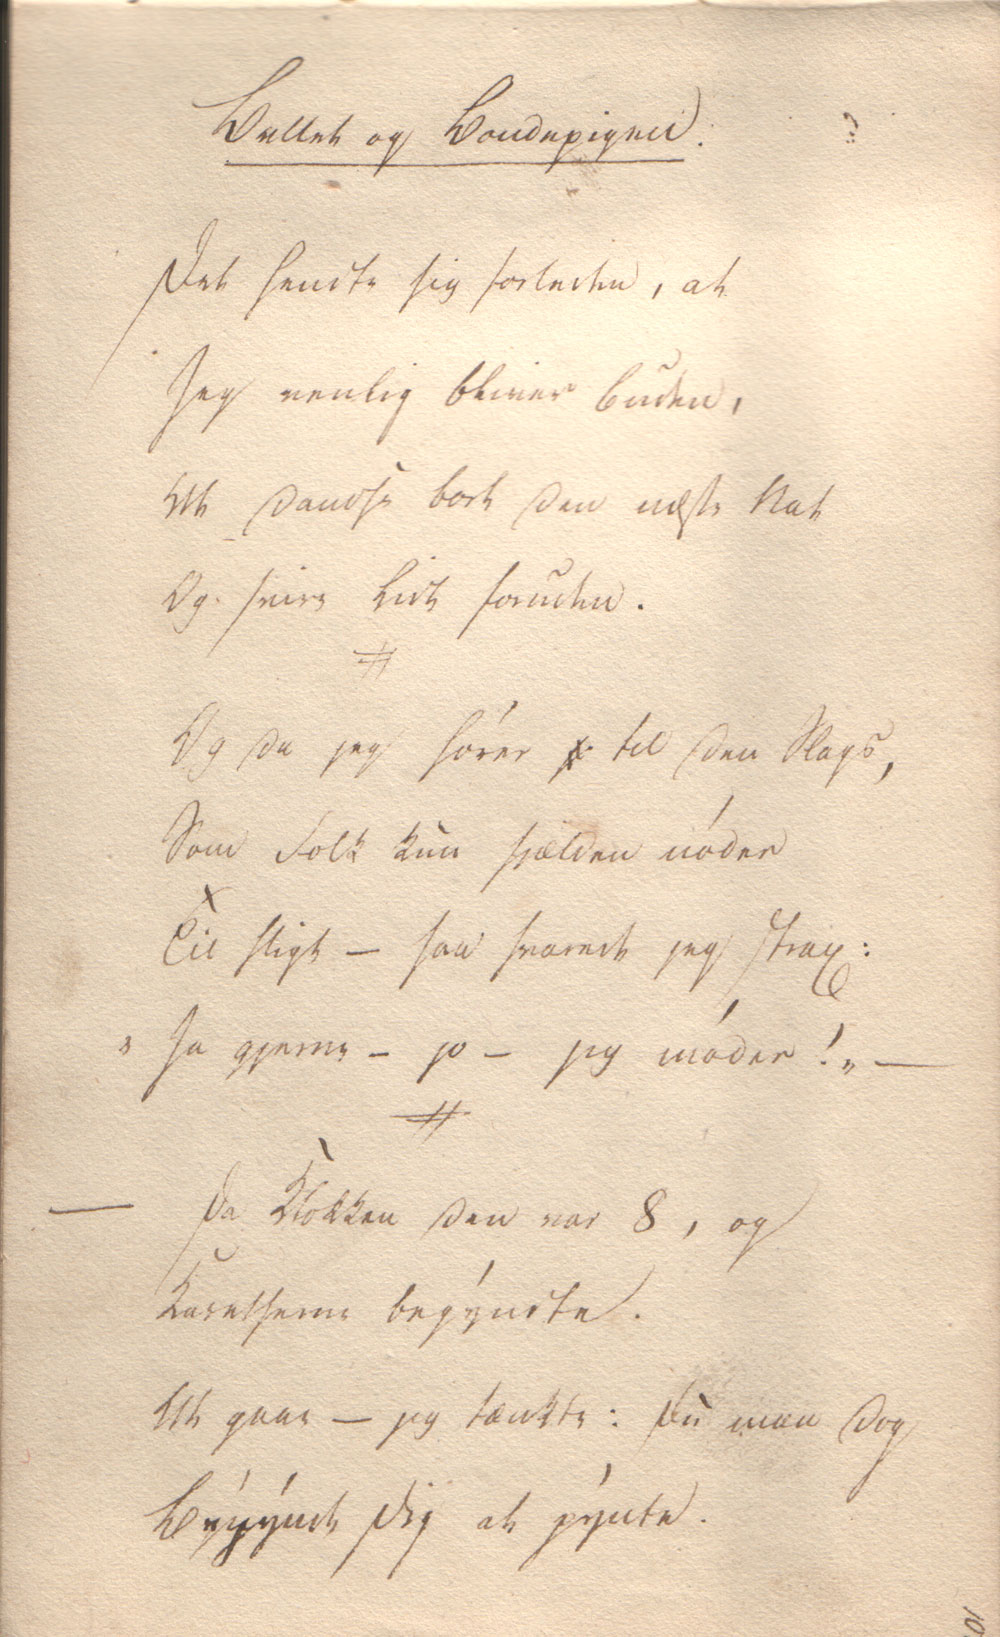 Ballet og Bondepigen. ?
Det hendte sig forleden, at
Jeg venlig bliver buden,
At dandse bort den næste Nat
Og svire lidt foruden.
Og da jeg hører til den Slags,
Som Folk kun sjælden nøder
Til sligt — saa svared jeg strax:
"Ja gjerne — jo — jeg møder!" —
— Da Klokken den var 8, og
Karetherne begyndte.
At gaae — jeg tænkte: Du maa dog
Begynde Dig at pynte.